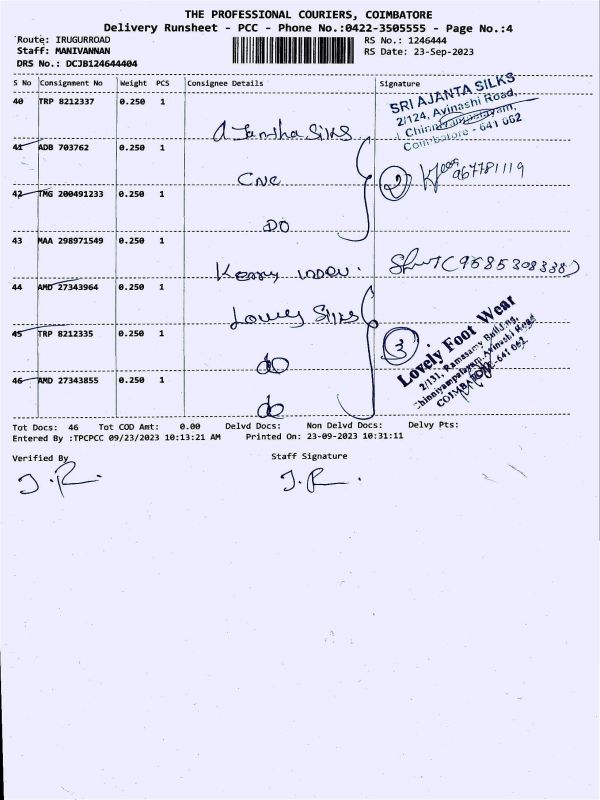 THE PROFESSIONAL COURIERS, COIMBATORE
Delivery Runsheet - PCC - Phone No.:0422-3505555 - Page No.:4
Route: IRUGURROAD
RS No.: 1246444
Staff: MANIVANNAN
RS Date: 23-Sep-2023
DRS No.: DCJB124644404
S No Consignment No Weight PCS Consignee Details Signature
40 TRP 8212337 0.250 1
SRI AJANTA SILKS
2/124, Avinashi Road,
Chinniyampalayam,
Coimbatore - 641 062
Ajantha Silks
41 ADB 703762 0.250 1
CNC
2
967781119
42 TMG 200491233 0.250 1
DO
43 MAA 298971549 0.250 1
Kerry Indev.
(9685308338)
44 AMD 27343964 0.250 1
Lovely Silks
45 TRP 8212335 0.250 1
3
Lovely Foot Wear
2/131, Ramasamy Building,
Chinniyampalayam, Avinashi Road
COIMBATORE-641 062
do
46 AMD 27343855 0.250 1
do
Tot Docs: 46 Tot COD Amt: 0.00 Delvd Docs: Non Delvd Docs: Delvy Pts:
Entered By :TPCPCC 09/23/2023 10:13:21 AM Printed On: 23-09-2023 10:31:11
Verified By Staff Signature
J.R. J.R.